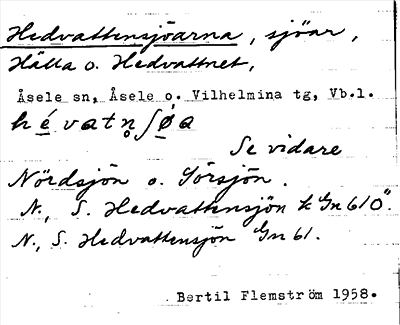 Hedvattensjöarna, sjöar,
Hälla o. Hedvattnet,
Åsele sn, Åsele o. Vilhelmina tg, Vb.l.
h é v a t n̥ ʃ ó̱ a
Se vidare
Nördsjön o. Sörsjön.
N., S. Hedvattensjön k Gn 61 Ö.
N., S. Hedvattensjön Gn 61.
Bertil Flemström 1958.